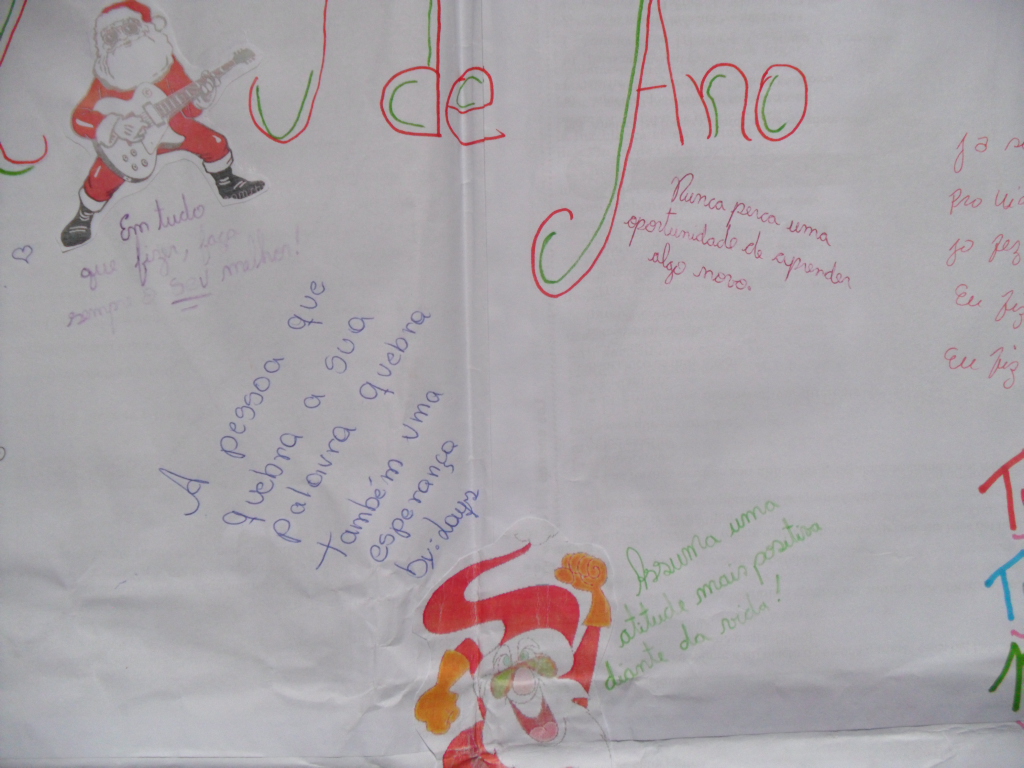 de Ano
Em tudo
que fizer, faça
sempre o seu melhor!
Nunca perca uma
oportunidade de aprender
algo novo.
A pessoa que
quebra a sua
palavra quebra
também uma
esperança
by: days
Assuma uma
atitude mais positiva
diante da vida!
ja
pro
ja fez
Eu fiz
Eu fiz